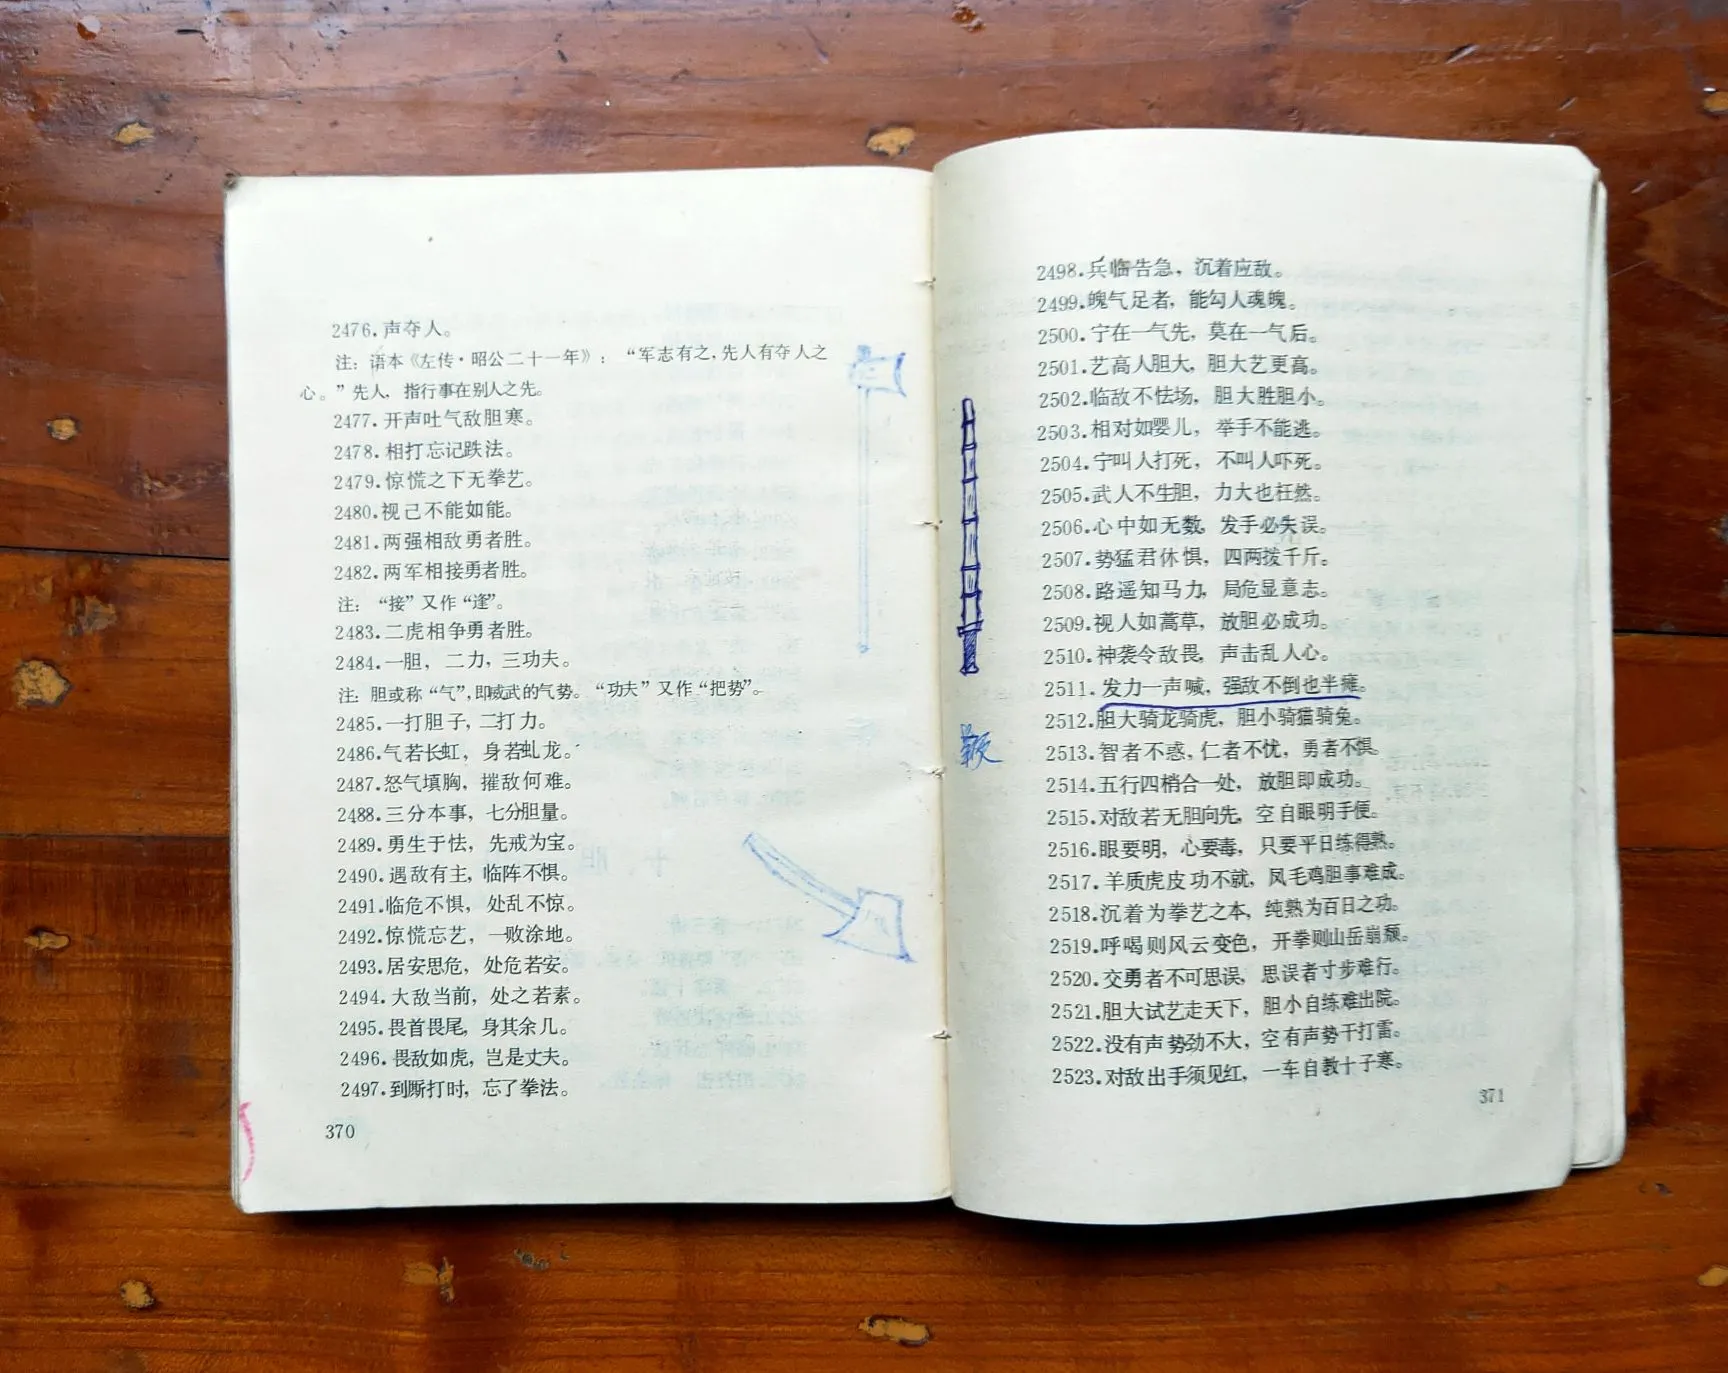 2476.声夺人。
注：语本《左传·昭公二十一年》：“军志有之，先人有夺人之
心。”先人，指行事在别人之先。
2477.开声吐气敌胆寒。
2478.相打忘记跌法。
2479.惊慌之下无拳艺。
2480.视己不能如能。
2481.两强相敌勇者胜。
2482.两军相接勇者胜。
注：“接”又作“逢”。
2483.二虎相争勇者胜。
2484.一胆，二力，三功夫。
注：胆或称“气”，即威武的气势。“功夫”又作“把势”。
2485.一打胆子，二打力。
2486.气若长虹，身若虬龙。
2487.怒气填胸，摧敌何难。
2488.三分本事，七分胆量。
2489.勇生于怯，先戒为宝。
2490.遇敌有主，临阵不惧。
2491.临危不惧，处乱不惊。
2492.惊慌忘艺，一败涂地。
2493.居安思危，处危若安。
2494.大敌当前，处之若素。
2495.畏首畏尾，身其余几。
2496.畏敌如虎，岂是丈夫。
2497.到厮打时，忘了拳法。
370
2498.兵临告急，沉着应敌。
2499.魄气足者，能勾人魂魄。
2500.宁在一气先，莫在一气后。
2501.艺高人胆大，胆大艺更高。
2502.临敌不怯场，胆大胜胆小。
2503.相对如婴儿，举手不能逃。
2504.宁叫人打死，不叫人吓死。
2505.武人不生胆，力大也枉然。
2506.心中如无数，发手必失误。
2507.势猛君休惧，四两拨千斤。
2508.路遥知马力，局危显意志。
2509.视人如蒿草，放胆必成功。
2510.神袭令敌畏，声击乱人心。
2511.发力一声喊，强敌不倒也半瘫。
2512.胆大骑龙骑虎，胆小骑猫骑兔。
2513.智者不惑，仁者不忧，勇者不惧。
2514.五行四梢合一处，放胆即成功。
2515.对敌若无胆向先，空自眼明手便。
2516.眼要明，心要毒，只要平日练得熟。
2517.羊质虎皮功不就，凤毛鸡胆事难成。
2518.沉着为拳艺之本，纯熟为百日之功。
2519.呼喝则风云变色，开拳则山岳崩颓。
2520.交勇者不可思误，思误者寸步难行。
2521.胆大试艺走天下，胆小自练难出院。
2522.没有声势劲不大，空有声势干打雷。
2523.对敌出手须见红，一车自教十子寒。
371